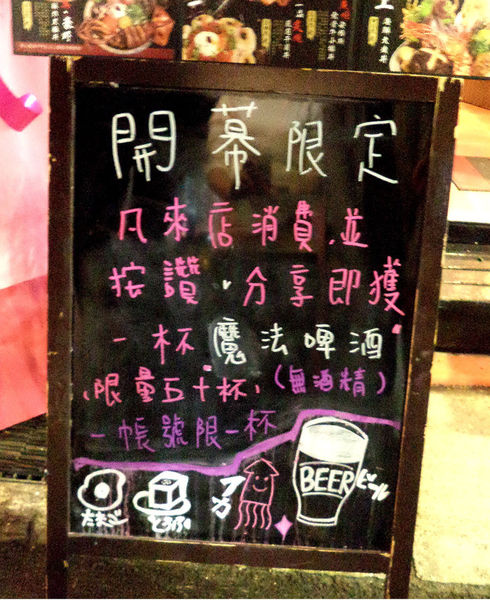 開幕限定
凡來店消費，並
按讚，分享即獲
一杯魔法啤酒
，限量五十杯，（無酒精）
一帳號限一杯
BEER
ビール
たまご
とうふ
イカ